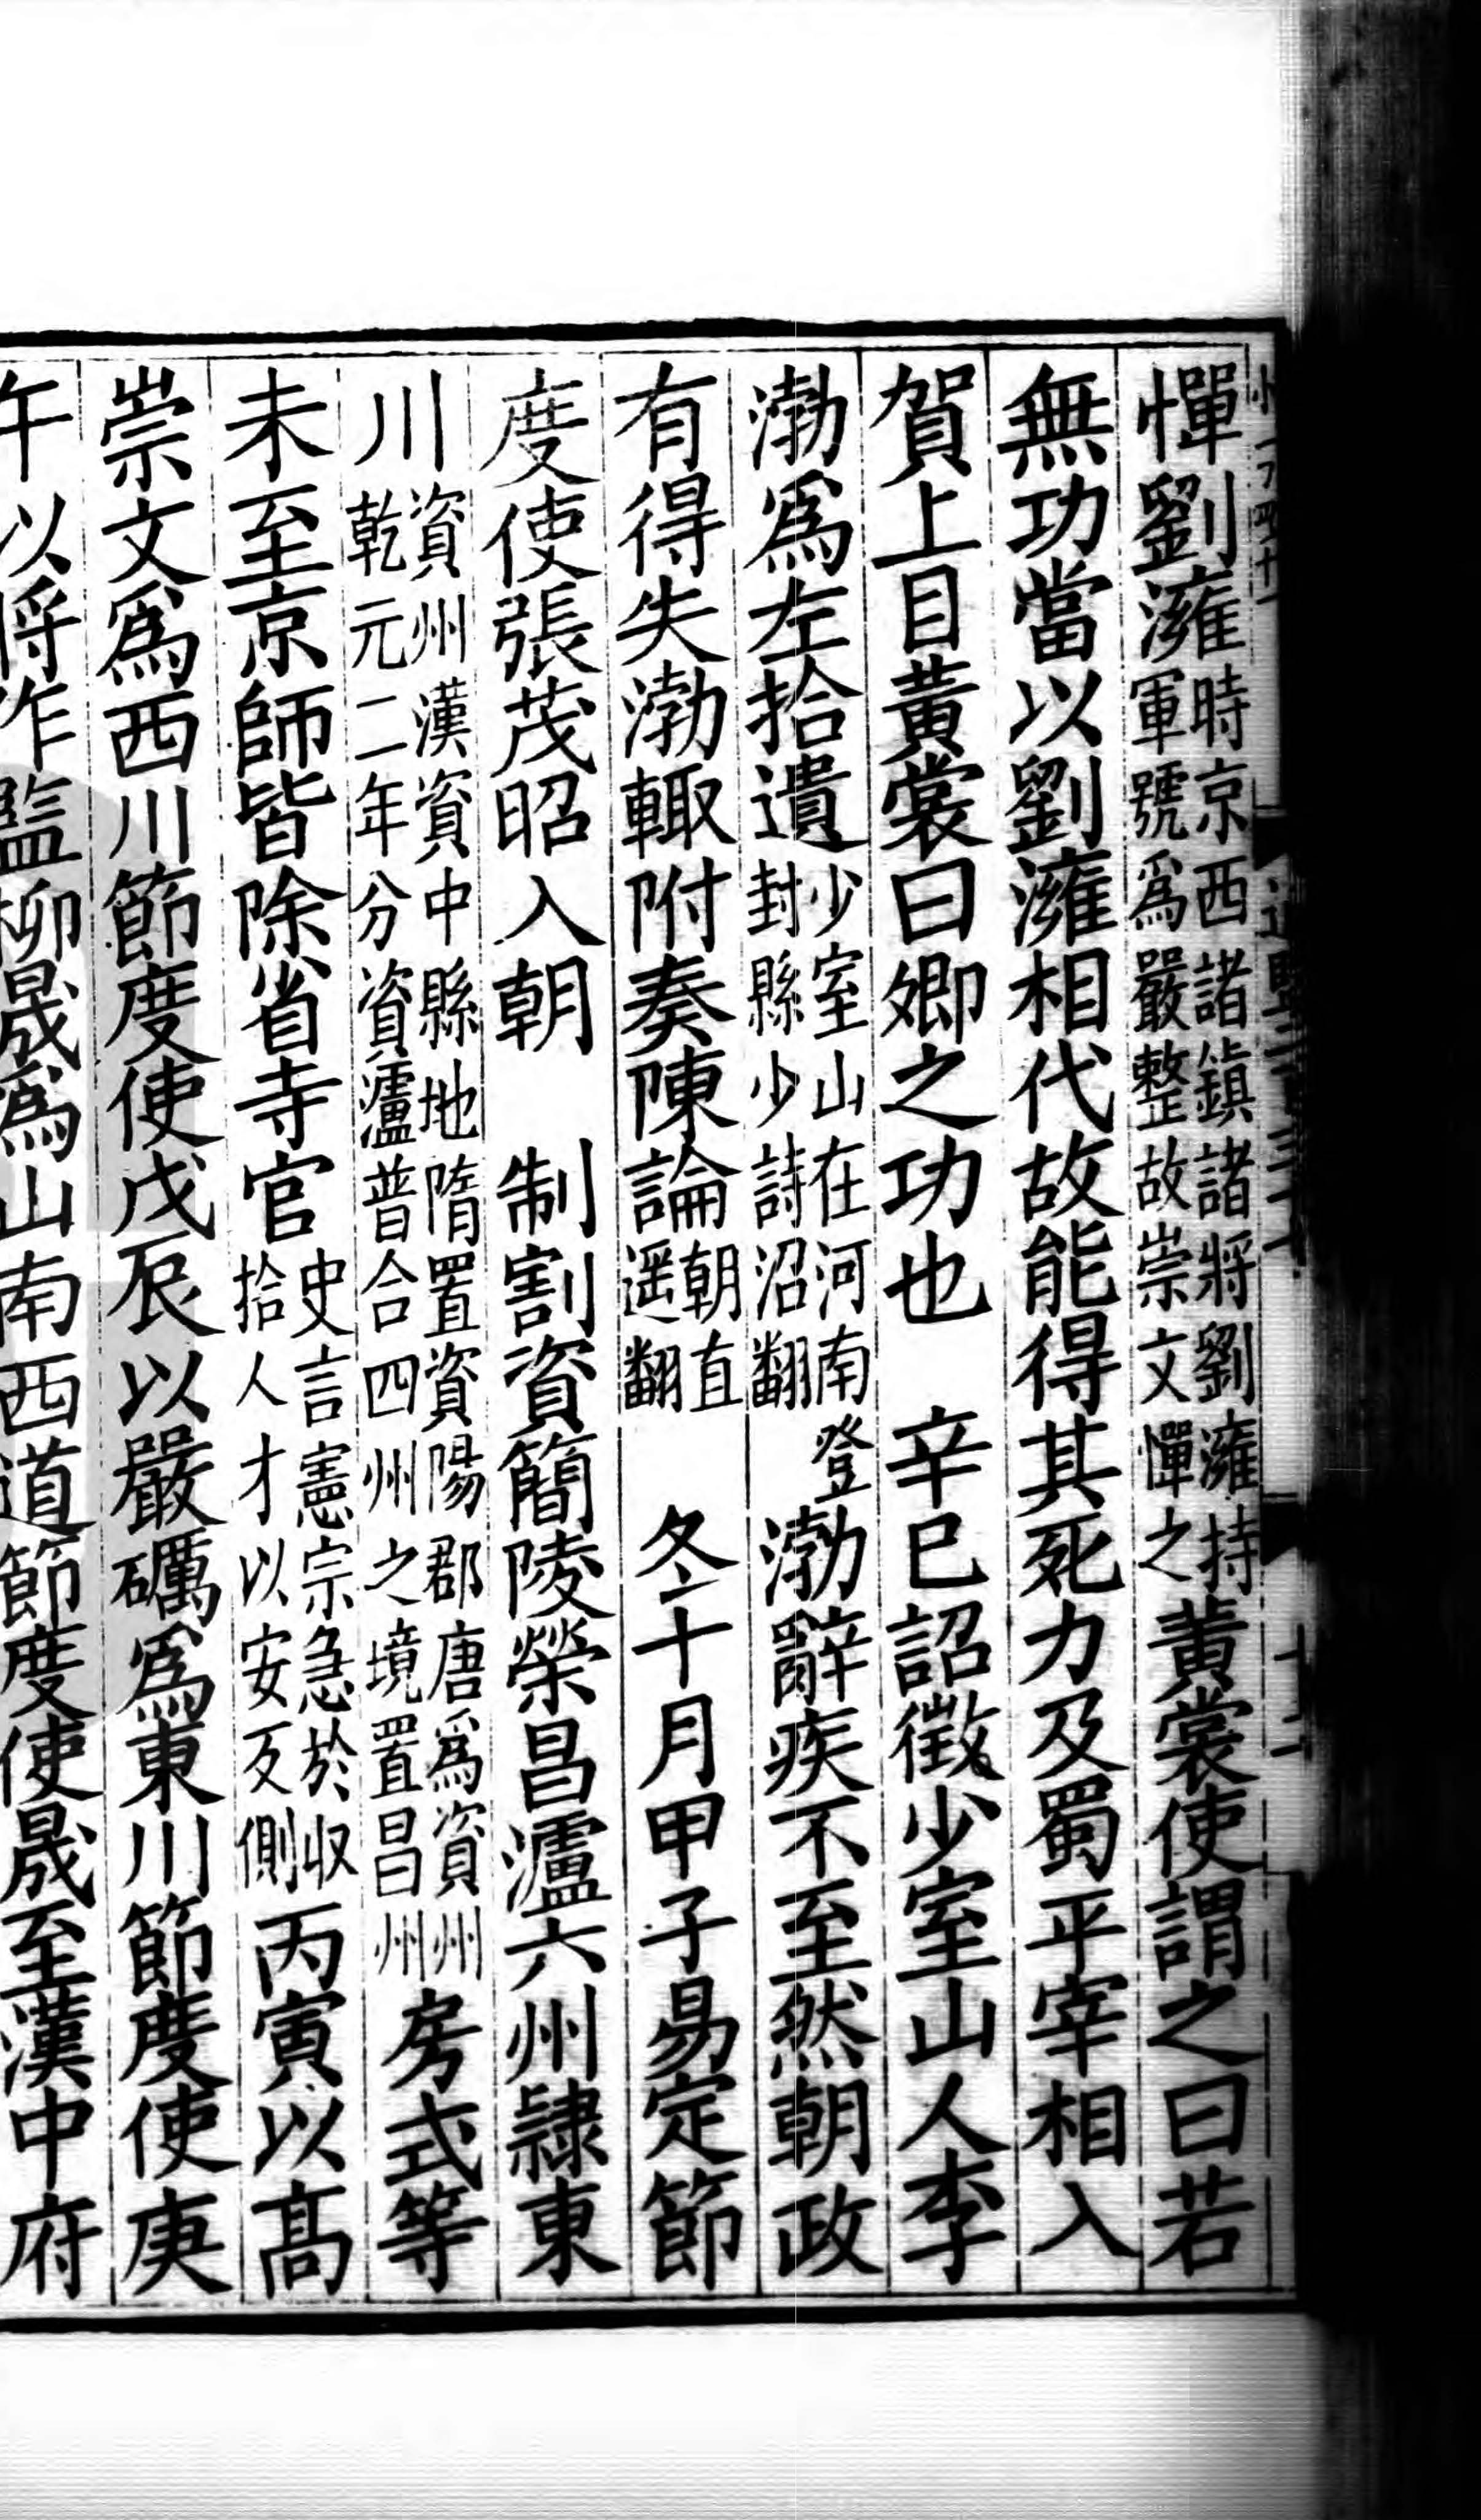 憚劉澭時京西諸鎮諸將劉澭持軍號爲嚴整故崇文憚之黃裳使謂之曰若
無功當以劉澭相代故能得其死力及蜀平宰相入
賀上目黃裳曰卿之功也　辛巳詔徵少室山人李
渤爲左拾遺少室山在河南登封縣少詩沼翻渤辭疾不至然朝政
有得失渤輙附奏陳論朝直遥翻　冬十月甲子易定節
度使張茂昭入朝　制割資簡陵榮昌瀘六州隸東
川資州漢資中縣地隋置資陽郡唐爲資州乾元二年分資瀘普合四州之境置昌州房式等
未至京師皆除省寺官史言憲宗急於収拾人才以安反側丙寅以髙
崇文爲西川節度使戊辰以嚴礪爲東川節度使庚
午以將作監柳晟爲山南西道節度使晟至漢中府